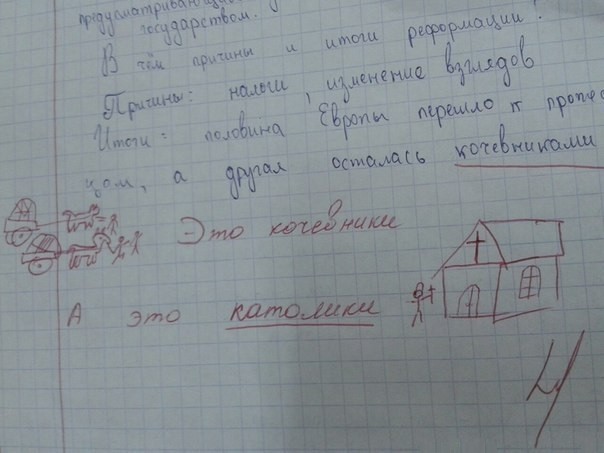 предусматривающи
государством.
В чём причины и итоги реформации?
Причины: налоги, изменение взглядов
Итоги: половина Европы перешло к протес
там, а другая осталась кочевниками
Это кочевники
А это католики
4